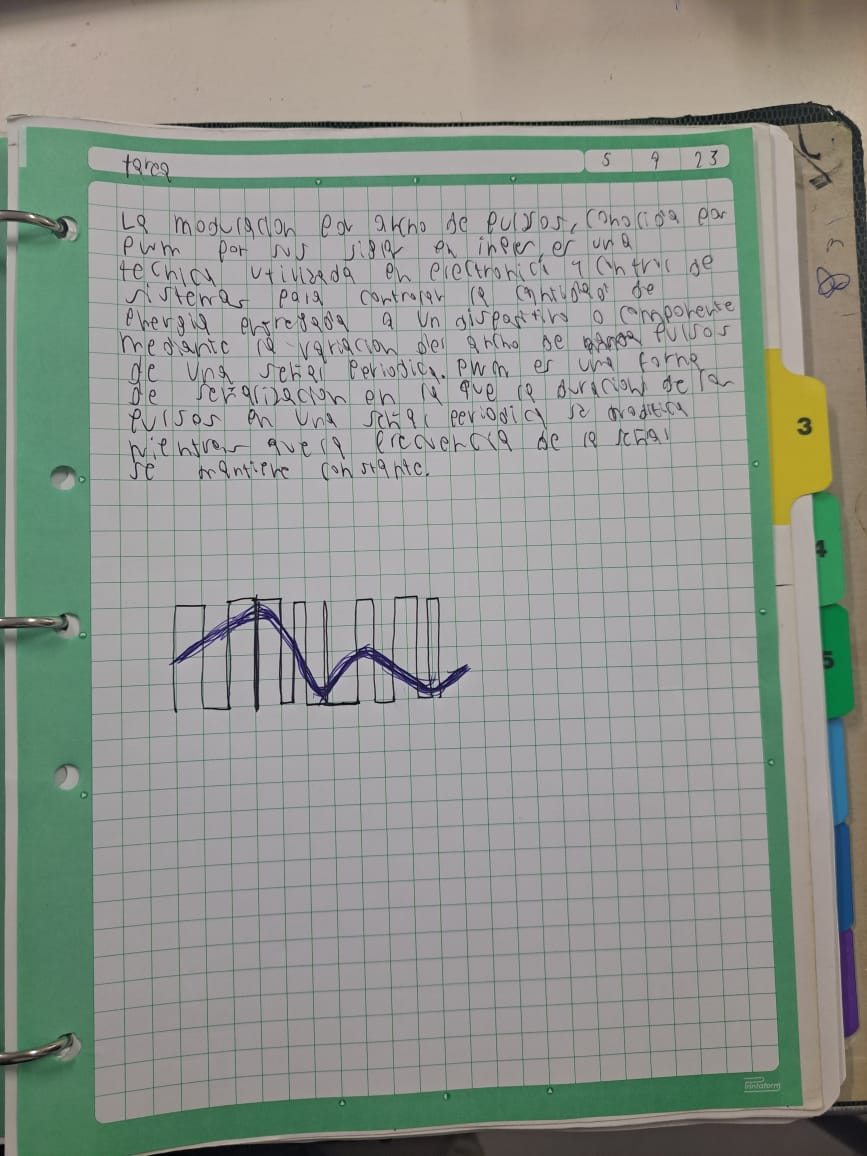 tarea
5 9 23
La modulacion por ancho de pulsos, conocida por
PWM por sus siglas en ingles, es una
tecnica utilizada en electronica y control de
sistemas para controlar la cantidad de
energia entregada a un dispositivo o componente
mediante la variacion del ancho de pulsos
de una señal periodica. PWM es una forma
de señalizacion en la que la duracion de los
pulsos en una señal periodica se modifica
mientras que la frecuencia de la señal
se mantiene constante.
3
4
5
Printaform